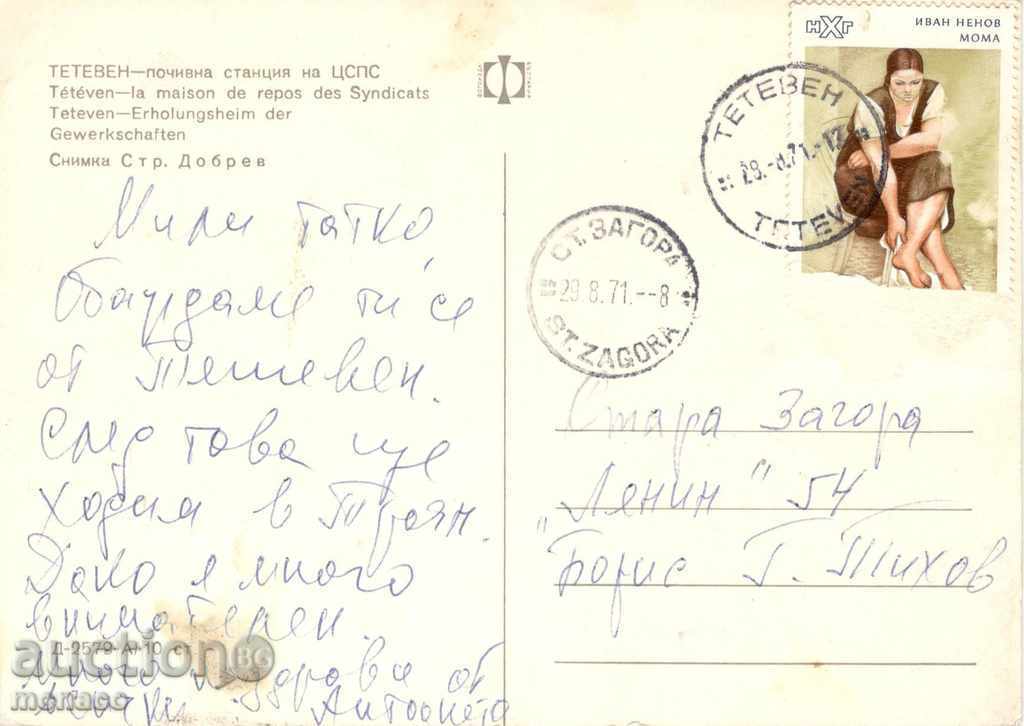 ТЕТЕВЕН—почивна станция на ЦСПС
Tétéven—la maison de repos des Syndicats
Teteven—Erholungsheim der
Gewerkschaften
Снимка Стр. Добрев
Мили татко
Обаждаме ти се
от Тетевен.
След това ще
ходим в Троян.
Дако е много
внимателен.
Д-2579-А/10 ст
Много поздрави от
всички Антоанета
НХГ
ИВАН НЕНОВ
МОМА
ТЕТЕВЕН
28.-8.71.-12
TETEVEN
СТ. ЗАГОРА
29.8.71.--8
ST. ZAGORA
Стара Загора
"Ленин" 54
Борис Г. Тихов
auction BG
monaco